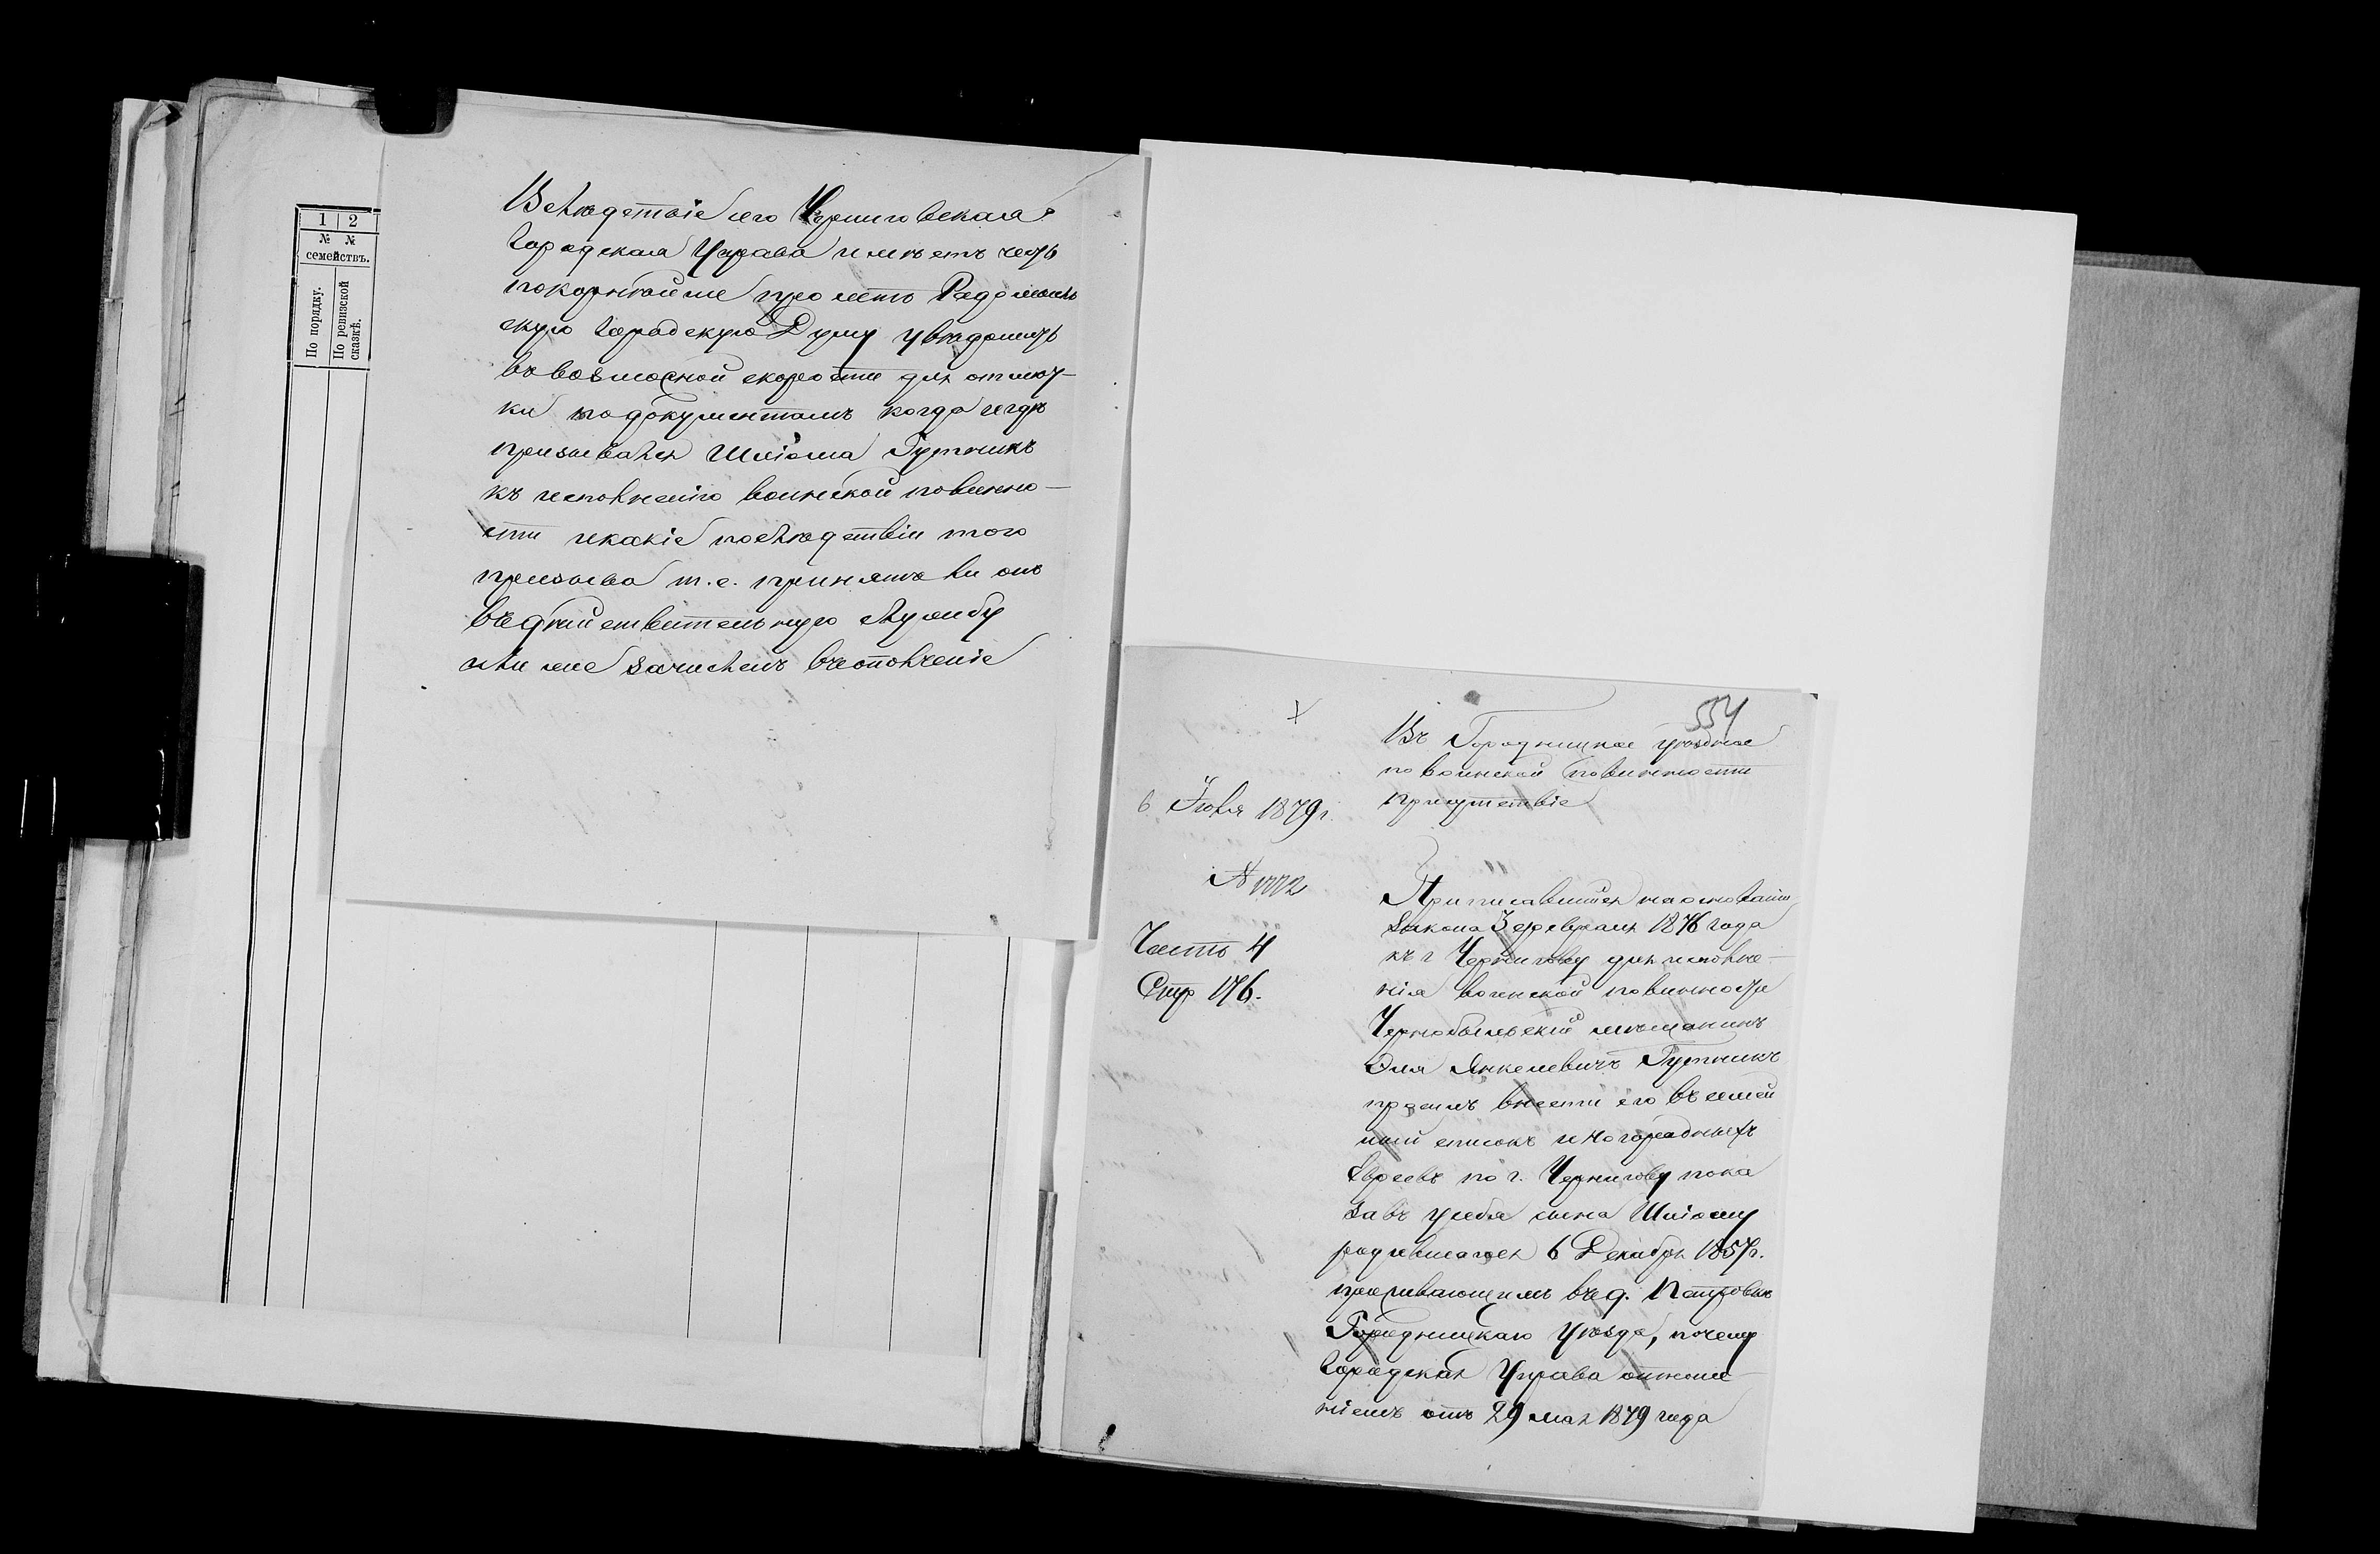 1 2
№ №
семействъ.
По порядку.
По ревизской
сказкѣ.
Вслѣдствіе сего Черниговская
Городская Управа имѣетъ честь
покорнѣйше проситъ Радомысль
скую Городскую Думу увѣдомить
въ возможной скорости для отмѣт-
ки по документамъ когда и гдѣ
призывался Шліома Гутникъ
къ исполненію воинской повинно-
сти и какіе послѣдствіи того
призыва т.е. принятъ ли онъ
въ дѣйствительную службу
или же зачисленъ въ ополченіе
554
Въ Городницкое уѣздное
по воинской повинности
присутствіе
6 Іюля 1879 г.
№
Часть 4
Стр 176.
Приписавшийся на основаніи
закона 3 февраля 1876 года
къ г Чернигову для исполне-
нія воинской повинности
Чернобыльскій мѣщанинъ
Эля Янкелевичъ Гутникъ
просилъ внести его въ семей
ный списокъ иногородныхъ
Евреевъ по г. Чернигову пока
завъ у себя сына Шліому
родившагося 6 Декабря 1857 г.
проживающимъ въ д.
Городницкаго уѣзда, почему
Городская Управа отноше-
ніемъ отъ 29 мая 1879 года